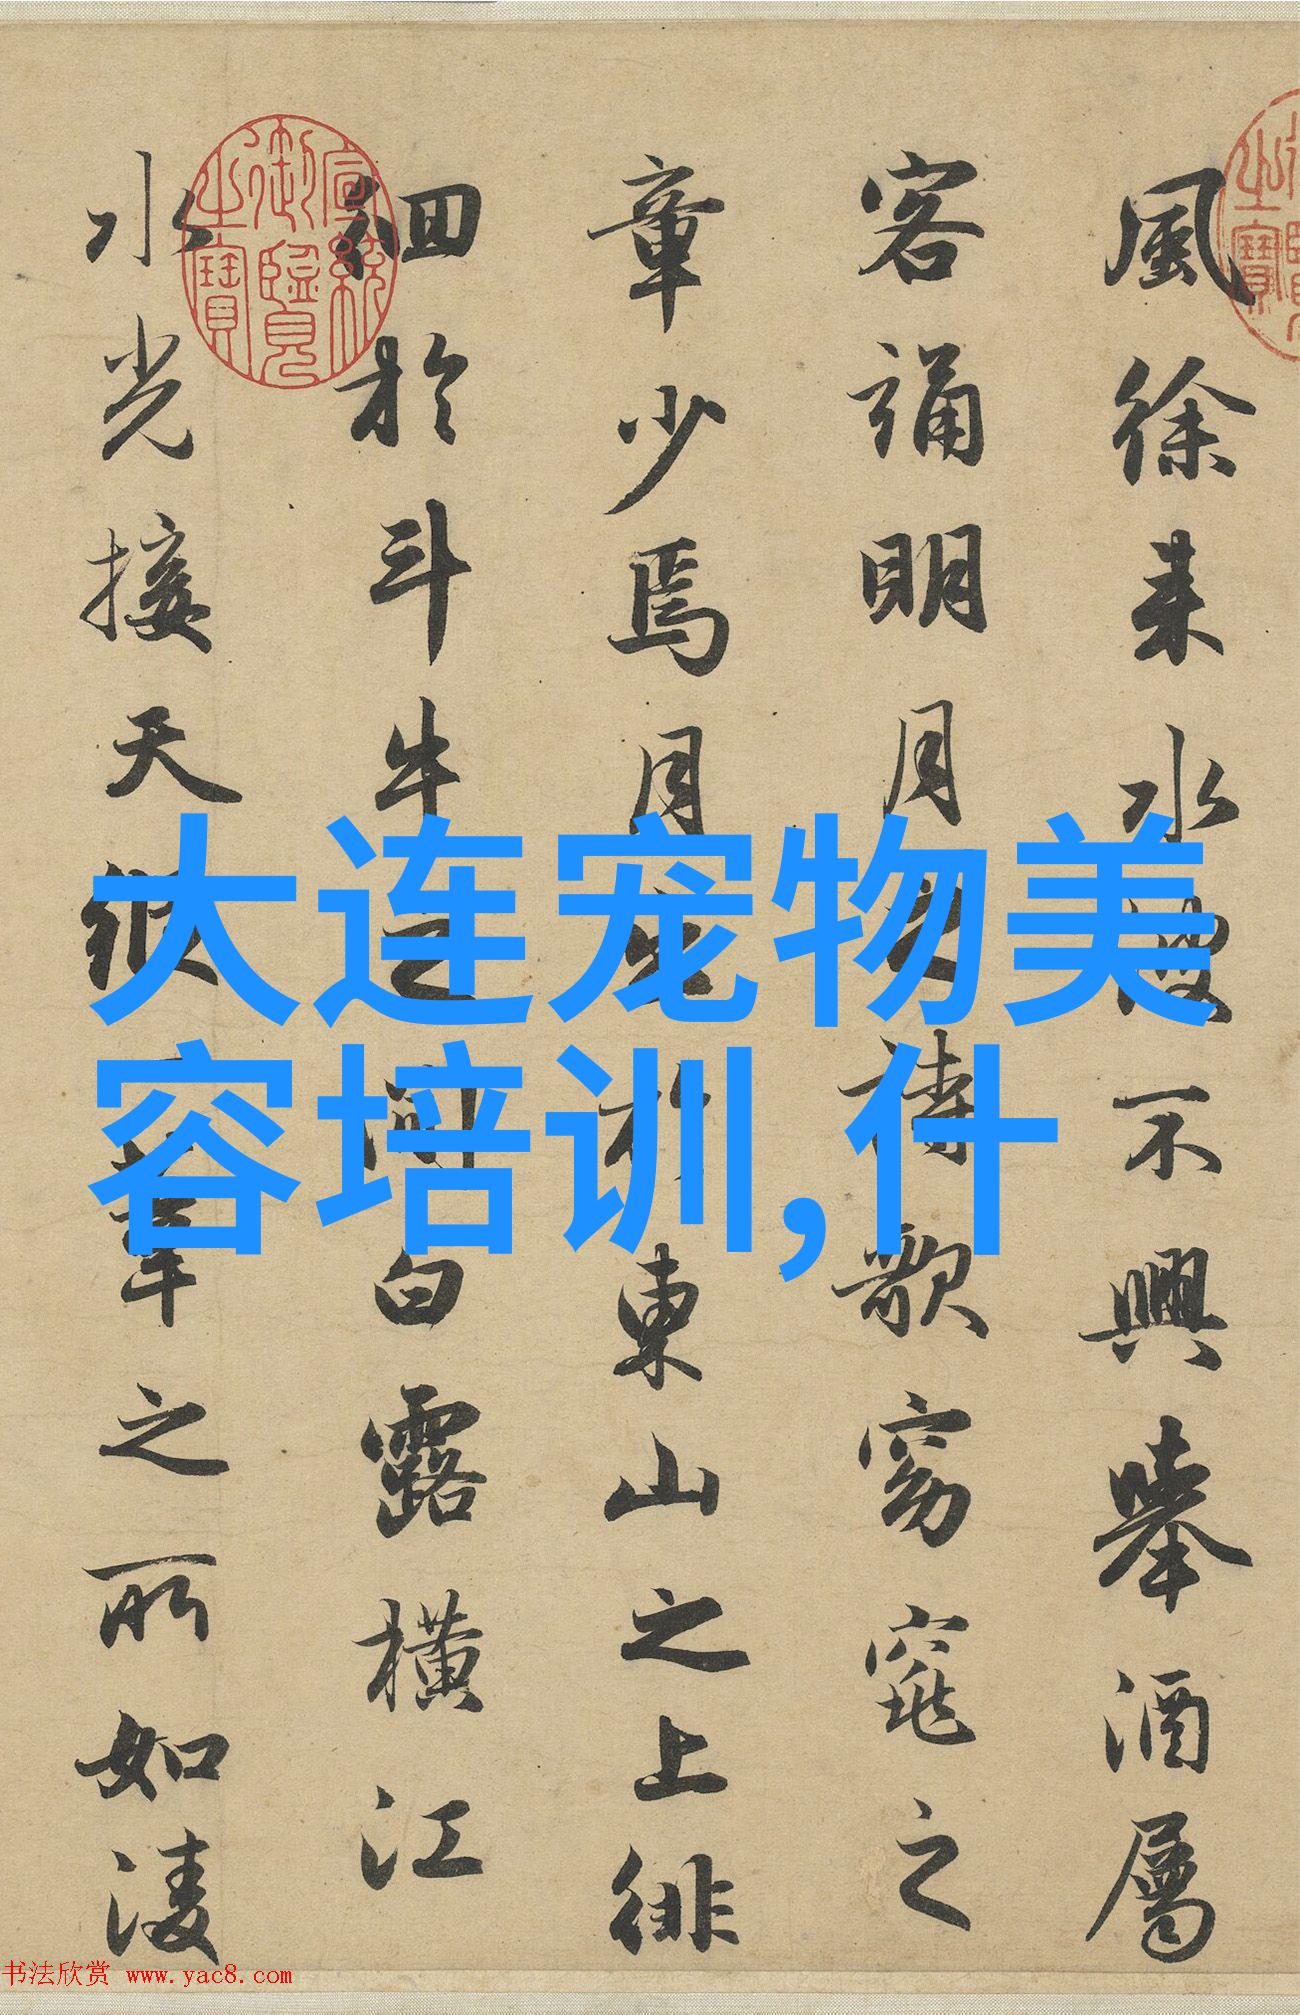 風徐来水波不興舉酒屬
客誦明月之詩歌窈窕之
章少焉月出於東山之上徘
徊於斗牛之間白露橫江
水光接天縱一葦之所如凌
宣統御覽之寶
大连宠物美
容培训,什
书法欣赏 www.yac8.com